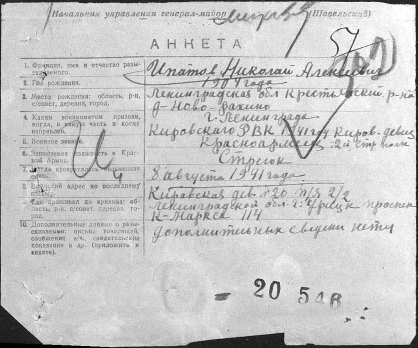 Начальник управления генерал-майор (Шавельский)
АНКЕТА
1. Фамилия, имя и отчество разыскиваемого.
Ипатов Николай Алексеевич
2. Год рождения.
года
3. Место рождения: область, р-н, с/совет, деревня, город.
Ленинградская обл Крестецкий р-на
д-Ново-Рахино
4. Каким военкоматом призван, когда, в какую часть и когда направлен.
г. Ленинграда
Кировского РВК 1941 год Киров. дивиз
5. Военное звание.
Красноармеец 2й стр полк
6. Занимаемая должность в Красной Армии.
Стрелок
7. Когда прекратилась письменная
8 августа 1941 года
8. адрес по последнему
Кировская див. №20 П/Я 2/2
9. Где проживал до призыва: область, р-н, с/совет, деревня, город.
Ленинградской обл г. Урицк проспек
К-Маркса 114
10. Дополнительные данные о разыскиваемом: письма товарищей, сообщения в/ч, свидетельские показания и др. (приложить к анкете).
дополнительных сведений нету
20 546